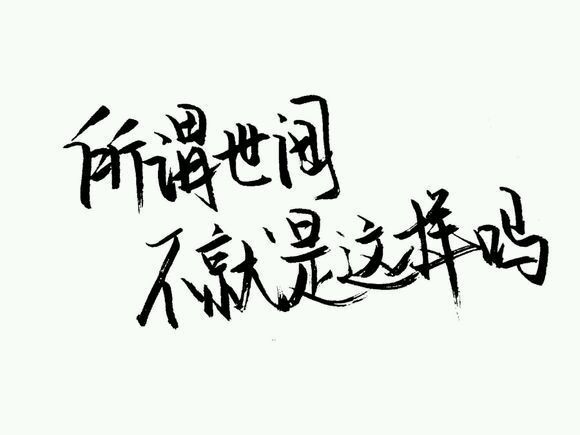 所谓世间
不就是这样吗